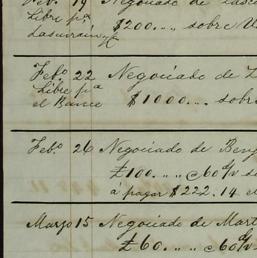 Feb.º 19 Negociado de
Libre pª $200.... sobre
Lascurain y Cª
Feb.º 22 Negociado de
Libre pª
el Banco $1000... sobre
Feb.º 26 Negociado de Benj
£100.. .. @60 d/v
á pagar $222.14. el
Marzo 15 Negociado de Mart
£60. .. .. @60 d/v